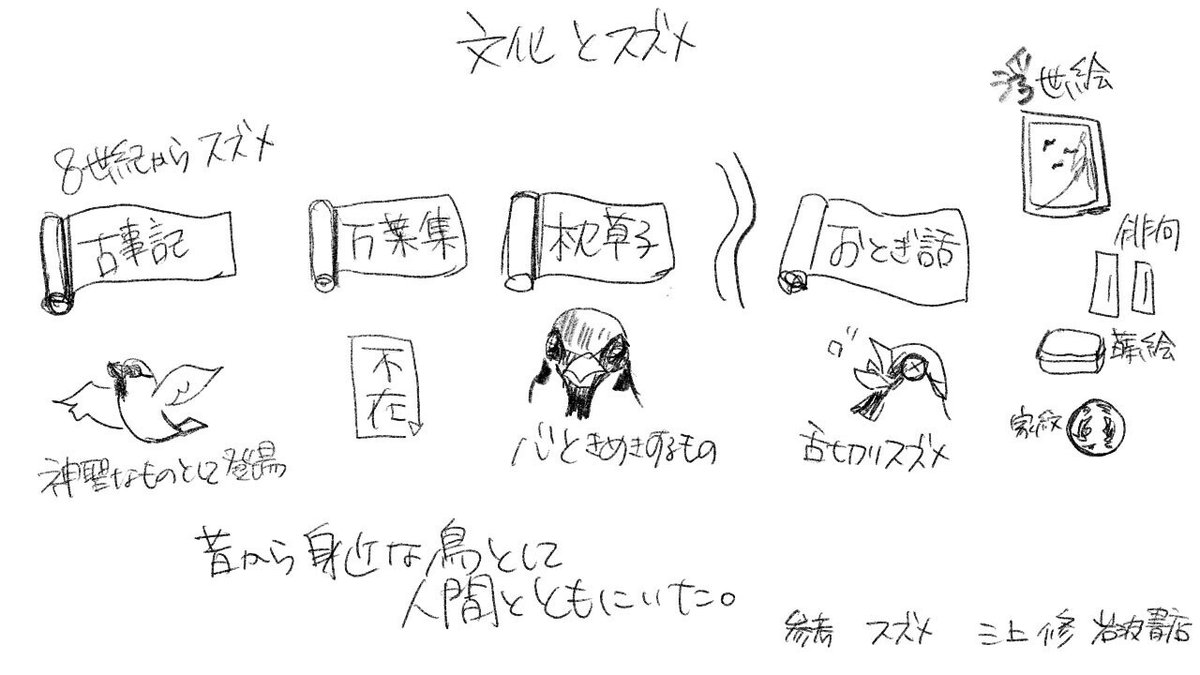 文化とスズメ
8世紀からスズメ
古事記
神聖なものとして登場
万葉集
不在
枕草子
心ときめきするもの
おとぎ話
舌切りスズメ
浮世絵
俳句
蒔絵
家紋
昔から身近な鳥として
人間とともにいた。
参考 スズメ 三上修 岩波書店